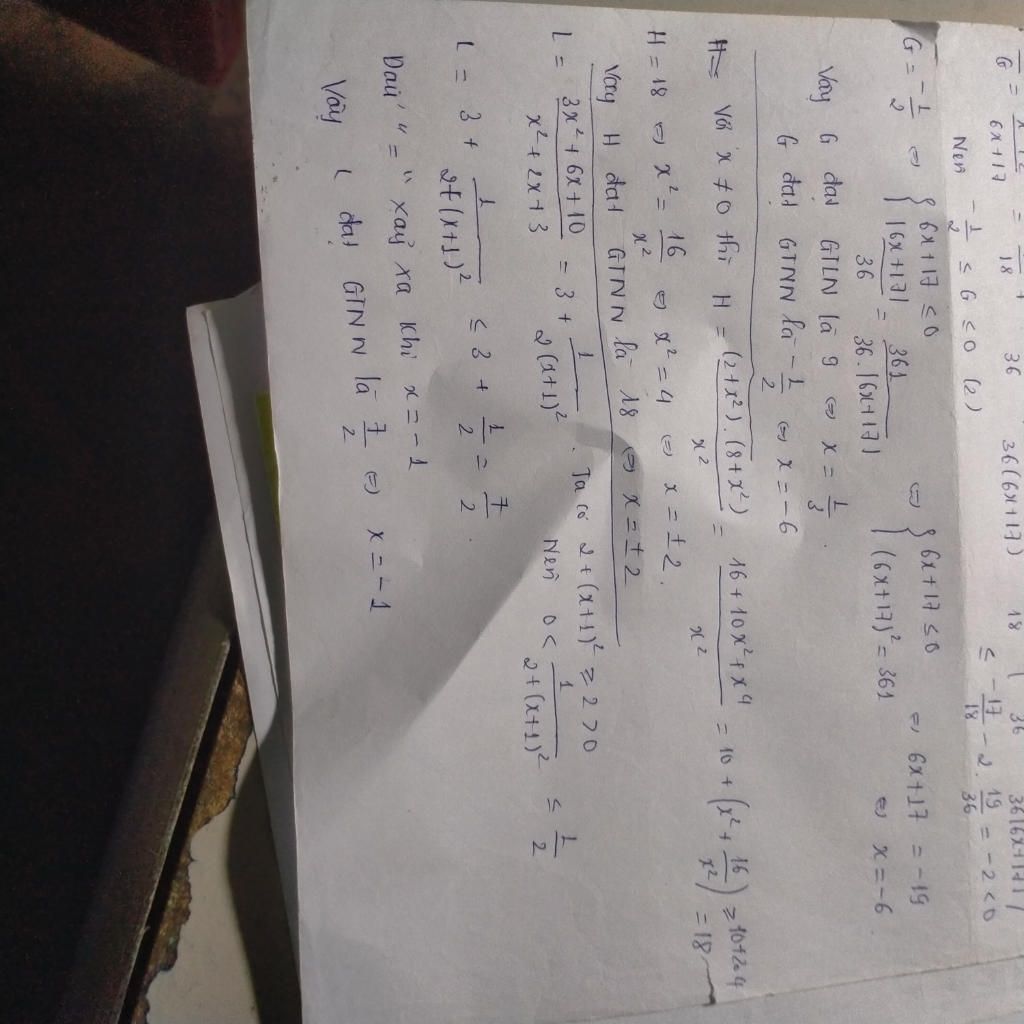 G = = 18 + 36 36(6x+17) 18 ( 36 36|6x+17| )
6x+17
Nên -1/2 ≤ G ≤ 0 (2) ≤ -17/18 - 2. 19/36 = -2 < 0
G = -1/2 ⇔ { 6x+17 ≤ 0 ⇔ { 6x+17 ≤ 0 ⇔ 6x+17 = -19
|6x+17|/36 = 361/36.|6x+17| (6x+17)² = 361 ⇔ x = -6
Vây G đạt GTLN là 9 ⇔ x = 1/3.
G đạt GTNN là -1/2 ⇔ x = -6
H= Với x ≠ 0 thì H = (2+x²).(8+x²)/x² = 16+10x²+x⁴/x² = 10 + (x² + 16/x²) ≥ 10+2.4
= 18
H = 18 ⇔ x² = 16/x² ⇔ x² = 4 ⇔ x = ±2.
Vây H đạt GTNN là 18 ⇔ x = ±2
L = 3x²+6x+10/x²+2x+3 = 3 + 1/2(x+1)². Ta có 2+(x+1)² ≥ 2 > 0
Nên 0 < 1/2+(x+1)² ≤ 1/2
L = 3 + 1/2+(x+1)² ≤ 3 + 1/2 = 7/2.
Dấu "=" xảy xa khi x = -1
Vây L đạt GTNN là 7/2 ⇔ x = -1